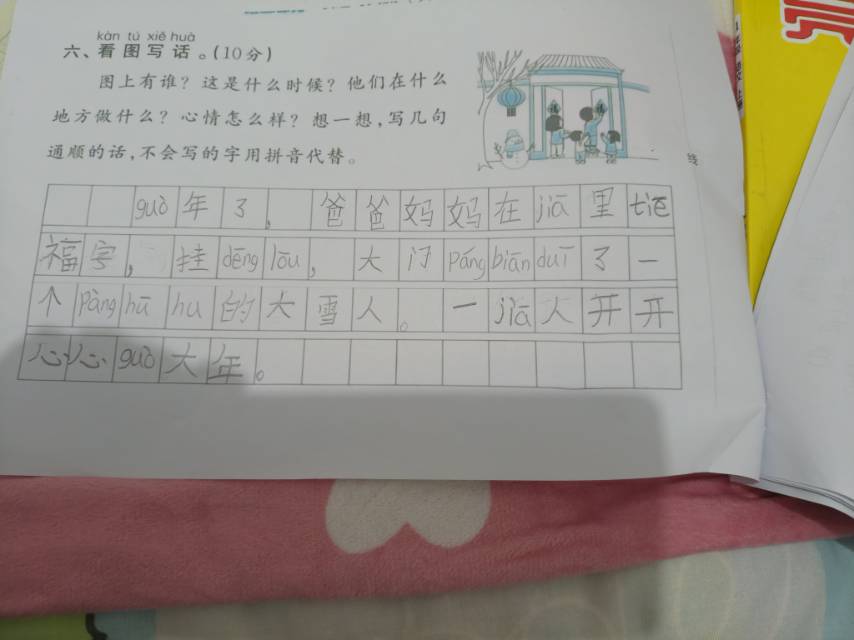 kàn tú xiě huà
六、看图写话。(10分)
图上有谁？这是什么时候？他们在什么
地方做什么？心情怎么样？想一想,写几句
通顺的话,不会写的字用拼音代替。
guò年了,爸爸妈妈在jiā里tiē
福字,挂dēnglōu,大门pángbiānduī了一
个pànghūhu的大雪人。一jiā人开开
心心guò大年。